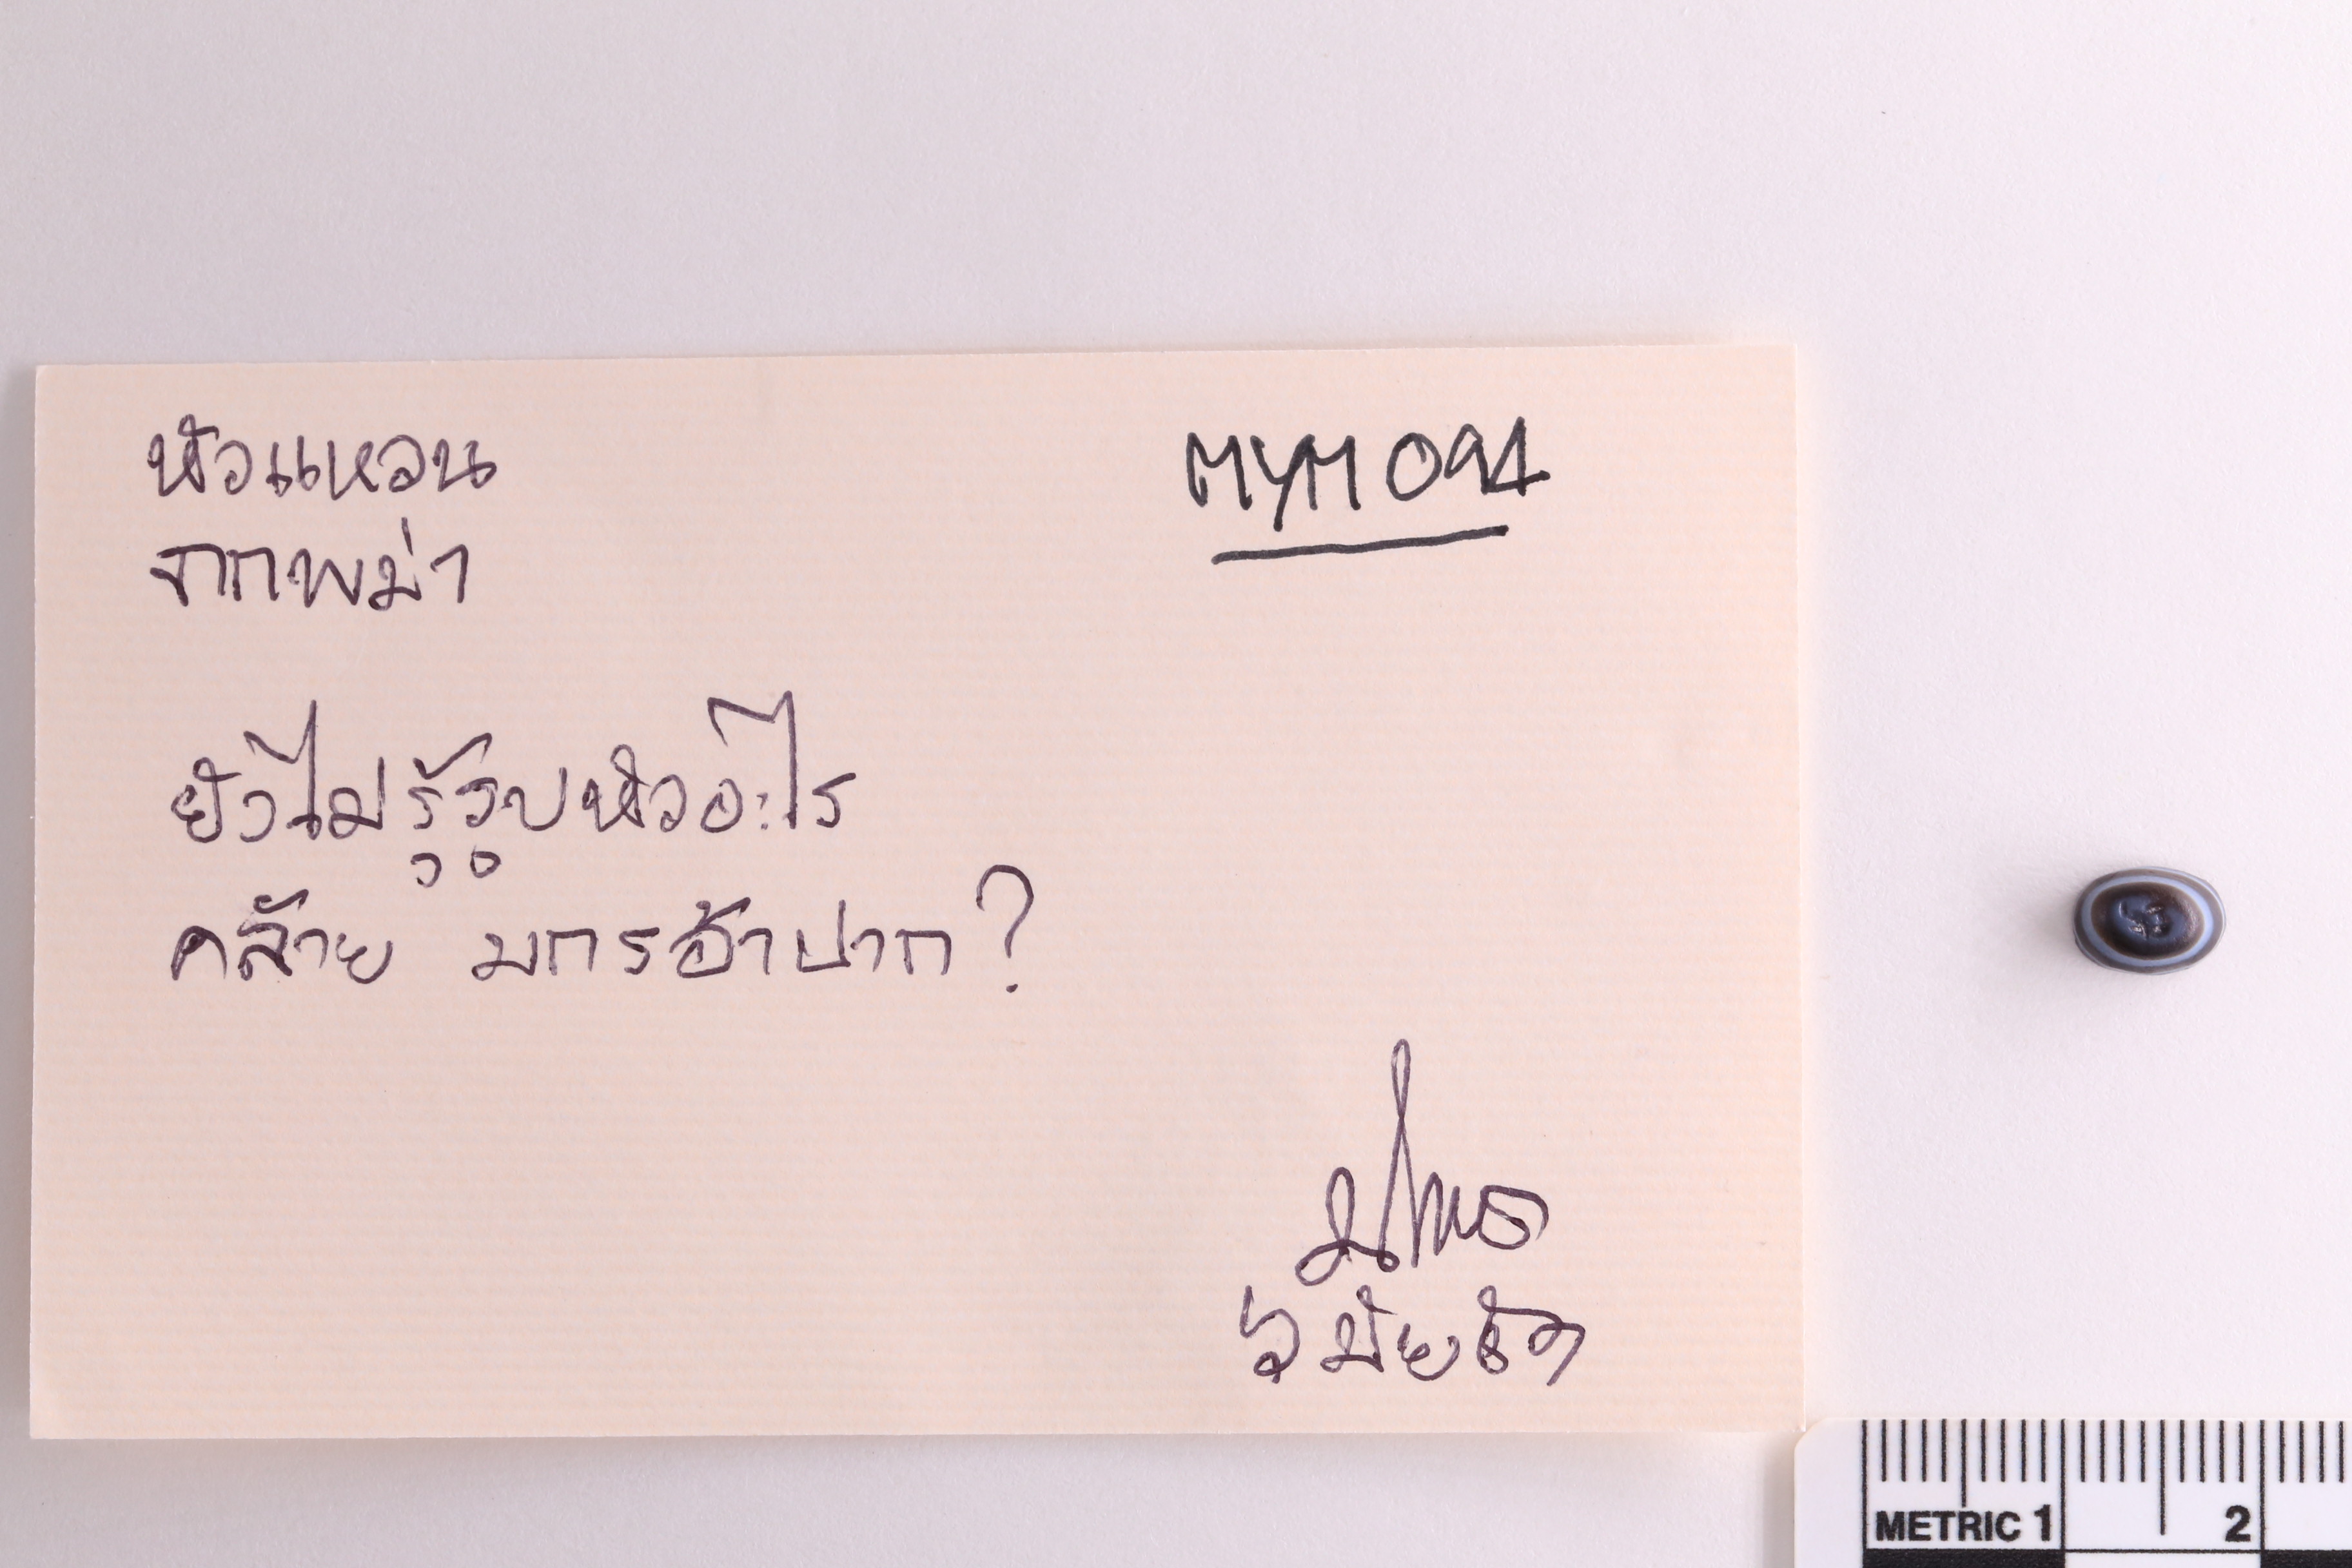 หัวแหวน
MYM 094
จากพม่า
ยังไม่รู้รูปหัวอะไร
คล้าย มกรอ้าปาก?
METRIC 1 2